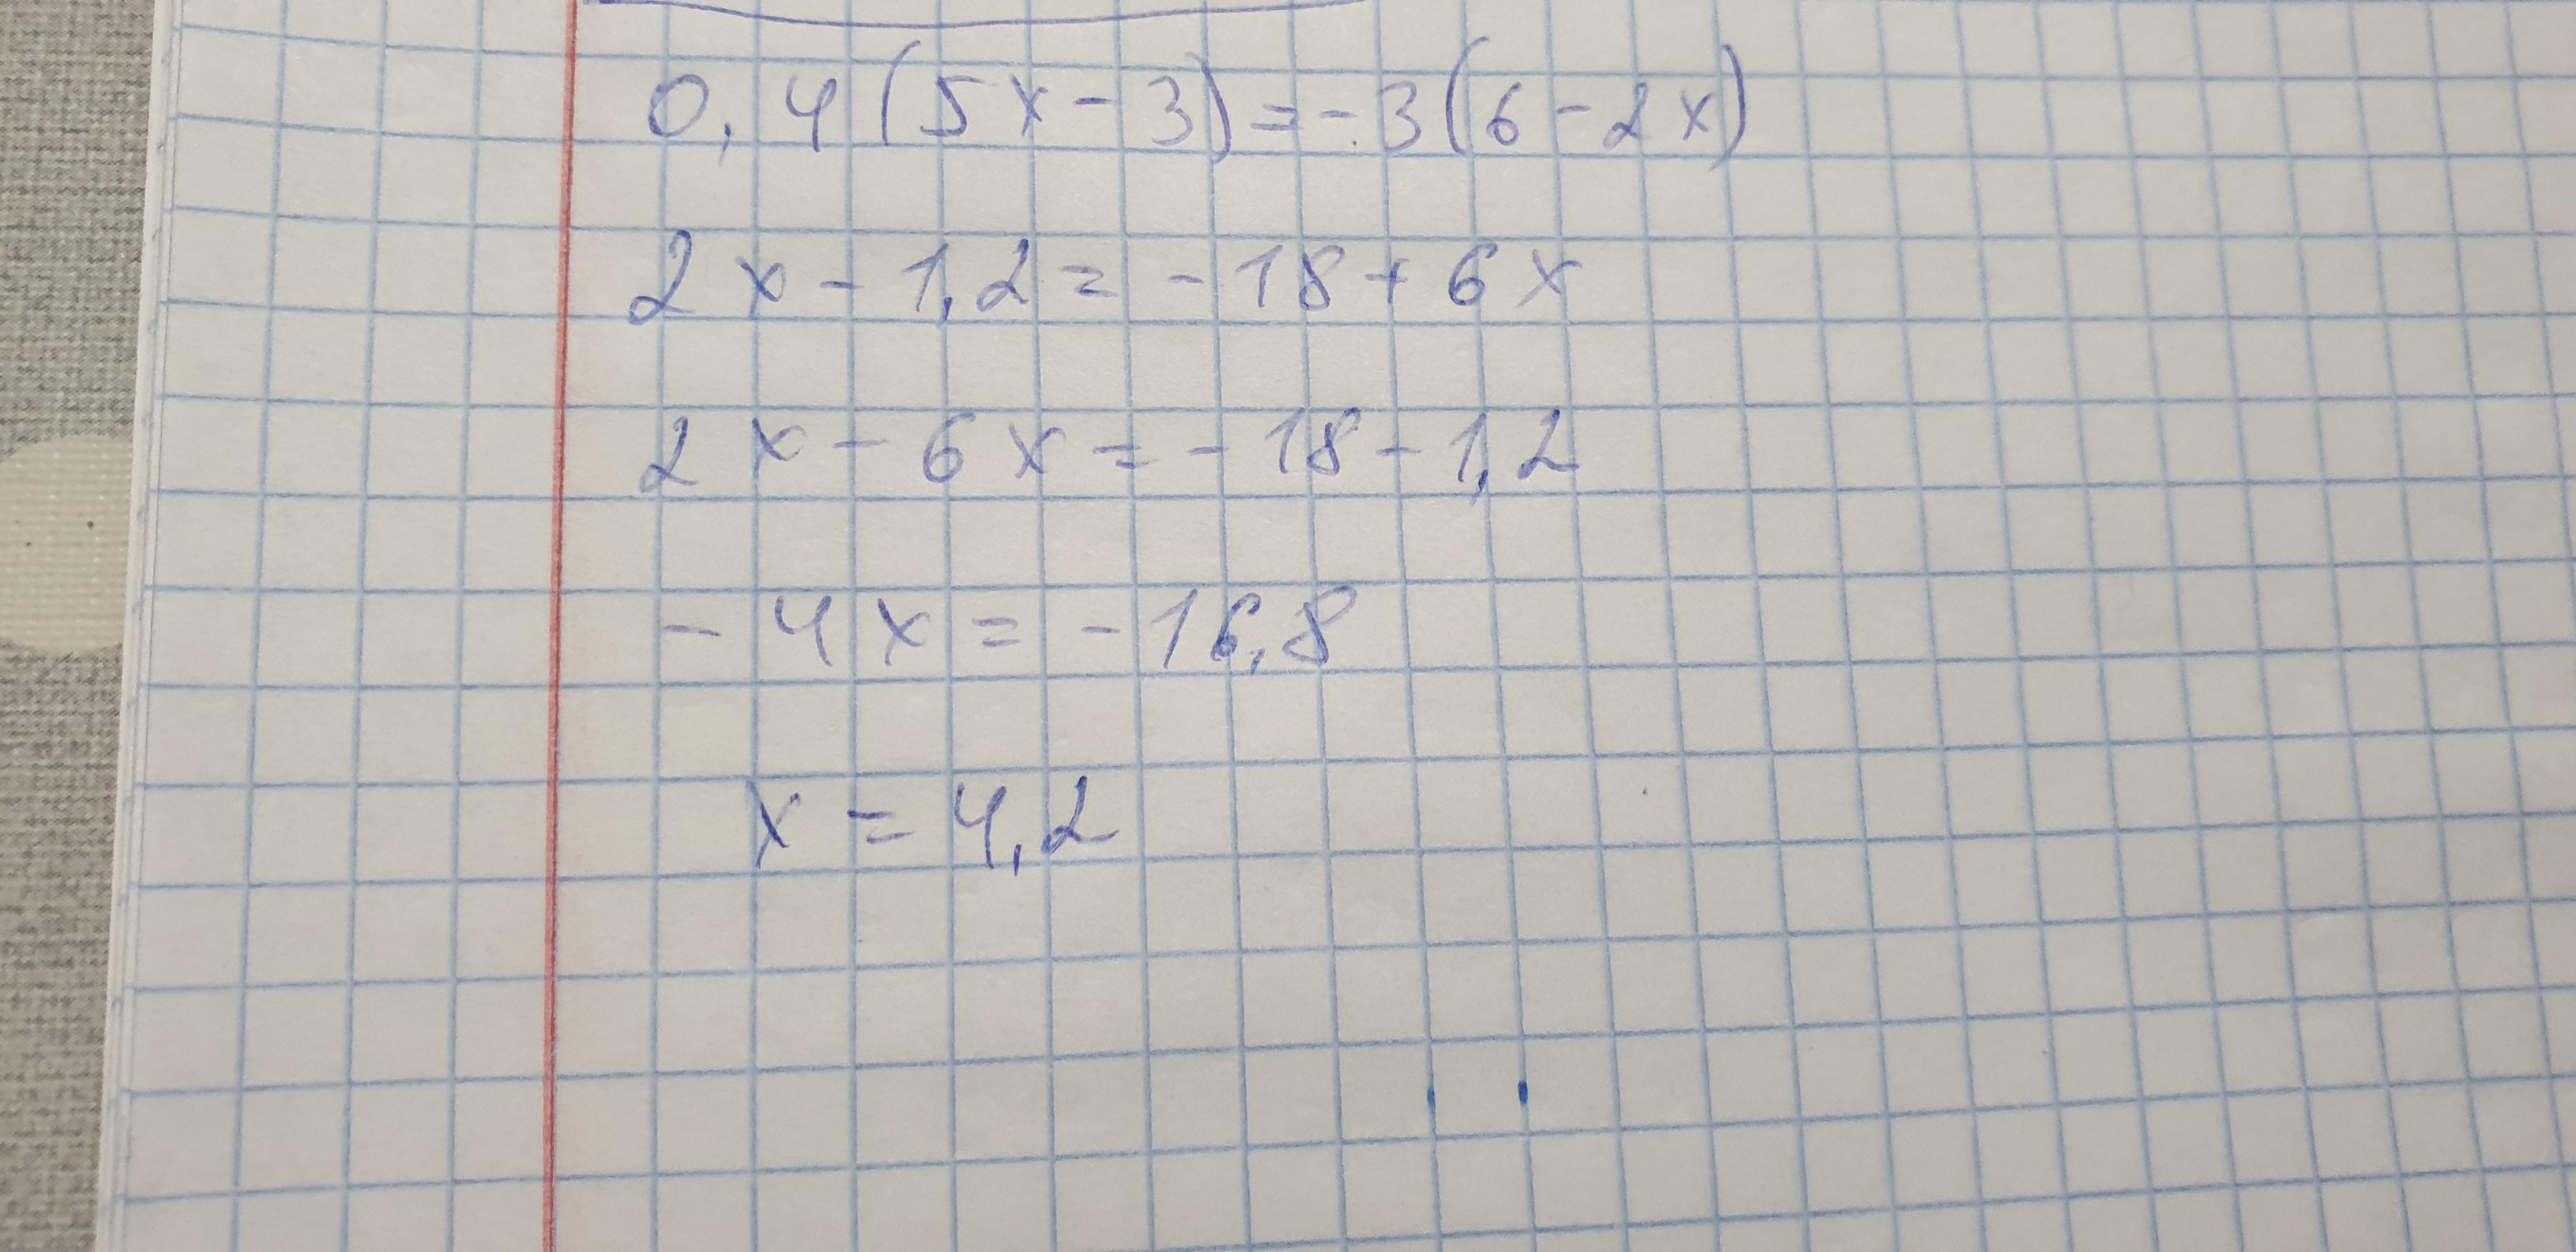 0,4(5x-3)=-3(6-2x)
2x-1,2=-18+6x
2x-6x=-18-1,2
-4x=-16,8
x=4,2